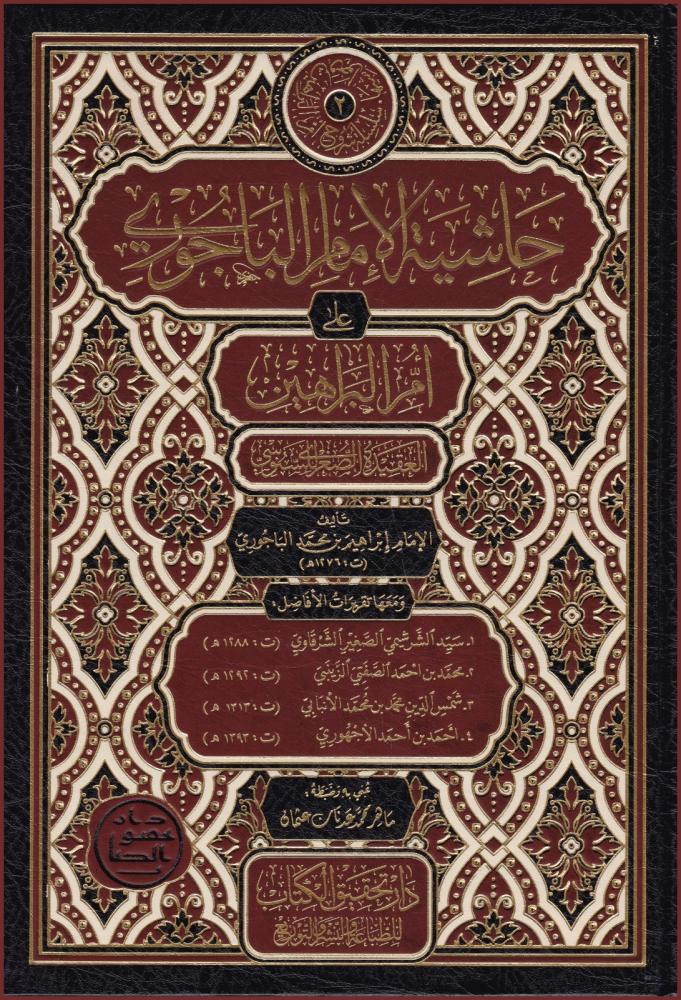 ٢
حَاشِيَة الإِمَامِ البَاجُوْرِي
عَلَى
أُمِّ البَرَاهِيْنِ
العَقِيدَة الصُّغْرَى للسَّنُوسِي
تَأليفُ
الإِمَامِ إِبْرَاهِيم بن محمّد الباجُوري
(ت: ١٢٧٦هـ)
وَمَعَهَا تَقْرِيرَاتُ الأَفَاضِل:
١. سَيِّد الشَّرْشِيمِي الصَّغِيْر الشَّرْقَاوِي (ت: ١٢٨٨ هـ)
٢. محمّد بن احمد الصَّفْتِي الزَّيْنَبِي (ت: ١٢٩٢ هـ)
٣. شَمْس الدِين محمَّد بن مُحَمَّد الأَنْبَابِي (ت: ١٣١٣ هـ)
٤. احَمَد بن أَحمَد الأُجْهُورِي (ت: ١٢٩٣ هـ)
عُنِيَ بِهِ وَضَبَطَهُ:
ماهر محمّد عدنان عثمان
دار تحقيق الكتاب
للطباعة والنشر والتوزيع